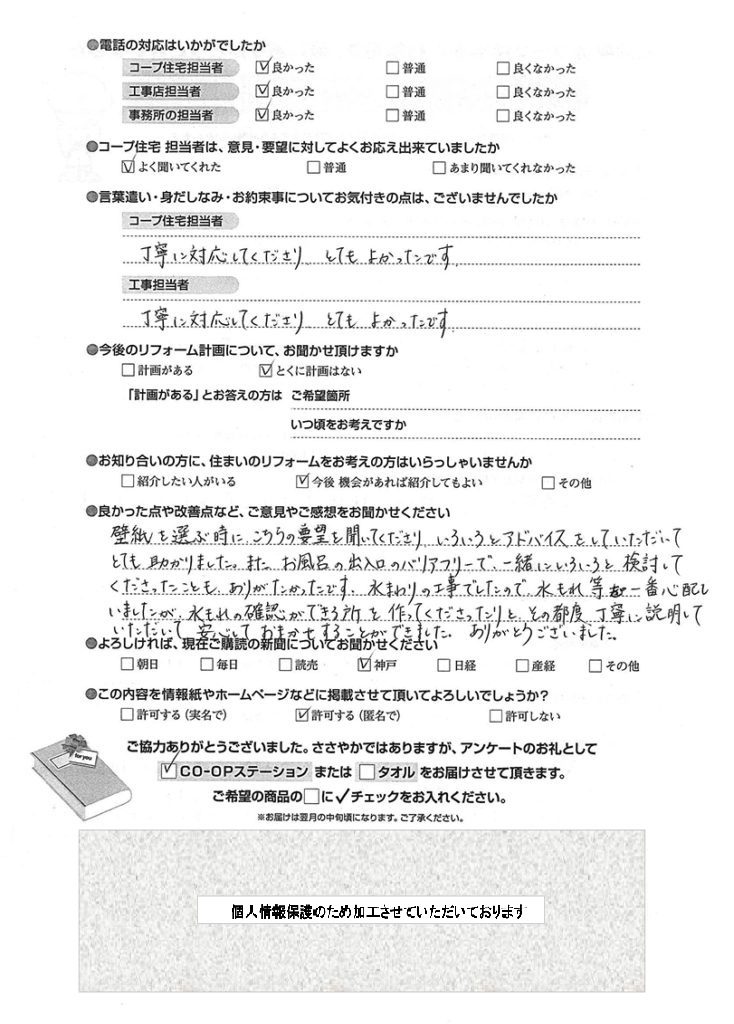 ●電話の対応はいかがでしたか
コープ住宅担当者 ☑良かった □普通 □良くなかった
工事店担当者 ☑良かった □普通 □良くなかった
事務所の担当者 ☑良かった □普通 □良くなかった
●コープ住宅 担当者は、意見・要望に対してよくお応え出来ていましたか
☑よく聞いてくれた □普通 □あまり聞いてくれなかった
●言葉遣い・身だしなみ・お約束事についてお気付きの点は、ございませんでしたか
コープ住宅担当者
丁寧に対応してくださり とても よかったです。
工事担当者
丁寧に対応してくださり とても よかったです。
●今後のリフォーム計画について、お聞かせ頂けますか
□計画がある ☑とくに計画はない
「計画がある」とお答えの方は ご希望箇所
いつ頃をお考えですか
●お知り合いの方に、住まいのリフォームをお考えの方はいらっしゃいませんか
□紹介したい人がいる ☑今後 機会があれば紹介してもよい □その他
●良かった点や改善点など、ご意見やご感想をお聞かせください
壁紙を選ぶ時に こちらの要望を聞いてくださり いろいろとアドバイスをしていただいて
とても助かりました。また お風呂の出入口のバリアフリーで、一緒にいろいろと 検討して
くださったことも、ありがたかったです。水まわりの工事でしたので、水もれ等 一番心配し
いましたが、水もれの確認ができる所を作ってくださったりと、その都度 丁寧に説明して
いただいて 安心して おまかせすることができました。ありがとうございました。
●よろしければ、現在ご購読の新聞についてお聞かせください
□朝日 □毎日 □読売 ☑神戸 □日経 □産経 □その他
●この内容を情報紙やホームページなどに掲載させて頂いてよろしいでしょうか?
□許可する(実名で) ☑許可する(匿名で) □許可しない
for you
ご協力ありがとうございました。ささやかではありますが、アンケートのお礼として
☑CO-OPステーション または □タオル をお届けさせて頂きます。
ご希望の商品の□に✓チェックをお入れください。
※お届けは翌月の中旬頃になります。ご了承ください。
個人情報保護のため加工させていただいております